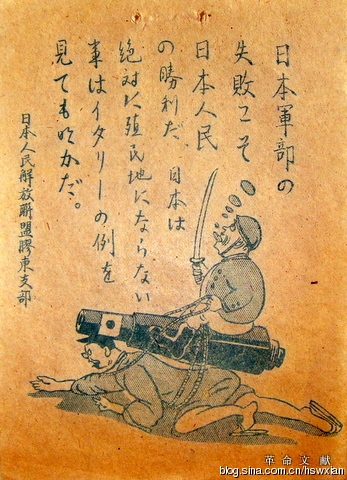 日本軍部の
失敗こそ
日本人民
の勝利だ、日本は
絶対に殖民地にならない
事はイタリーの例を
見ても明かだ。
日本人民解放聯盟膠東支部
革命文献
blog.sina.com.cn/hswxian